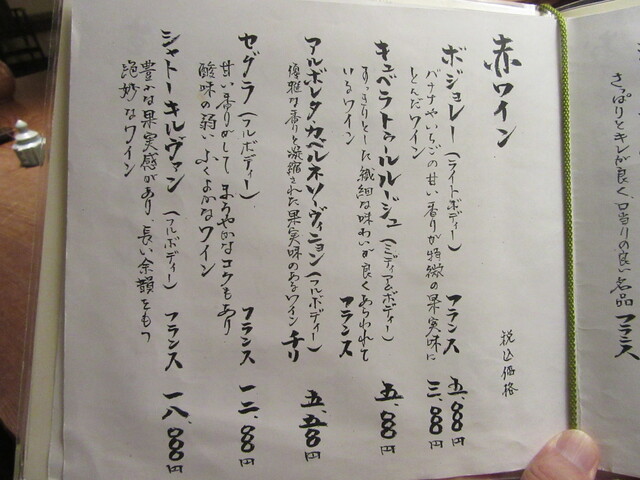 赤ワイン
税込価格
ボジョレー(ライトボディー) フランス 五、〇〇〇円
バナナやいちごの甘い香りが特徴の果実味に 三、〇〇〇円
とんだワイン
キュベラトゥールルージュ(ミディアムボディー) 五、〇〇〇円
すっきりとした繊細な味わいが良くあらわれて フランス
いるワイン
アルボレダ・カベルネソーヴィニョン(フルボディー) チリ 五、五〇〇円
優雅な香りと凝縮された果実味のあるワイン
セグラ(フルボディー) フランス 一二、〇〇〇円
甘い香りがして まろやかなコクもあり
酸味の弱い ふくよかなワイン
シャトーキルヴァン(フルボディー) フランス 一八、〇〇〇円
豊かな果実感があり、長い余韻をもつ
絶妙なワイン
さっぱりとキレが良く、口当りの良い名品 フランス